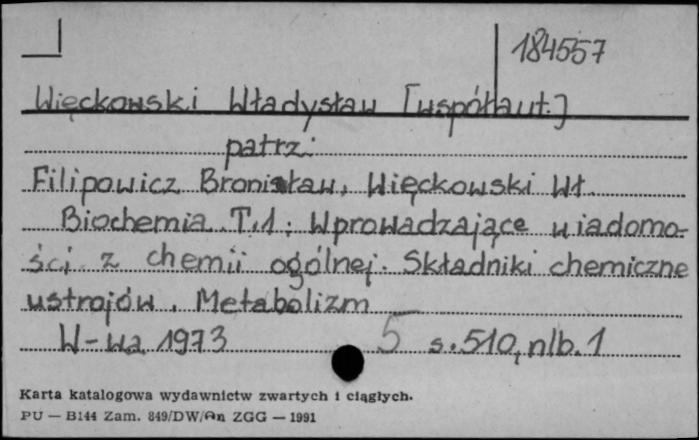 184557
Więckowski Władysław [współaut.]
patrz:
Filipowicz Bronisław, Więckowski Wł.
Biochemia. T.1: Wprowadzające wiadomo-
ści z chemii ogólnej. Składniki chemiczne
ustrojów. Metabolizm
W-wa 1973 5 s.510, nlb.1
Karta katalogowa wydawnictw zwartych i ciągłych.
PU — B144 Zam. 849/DW/An ZGG — 1991